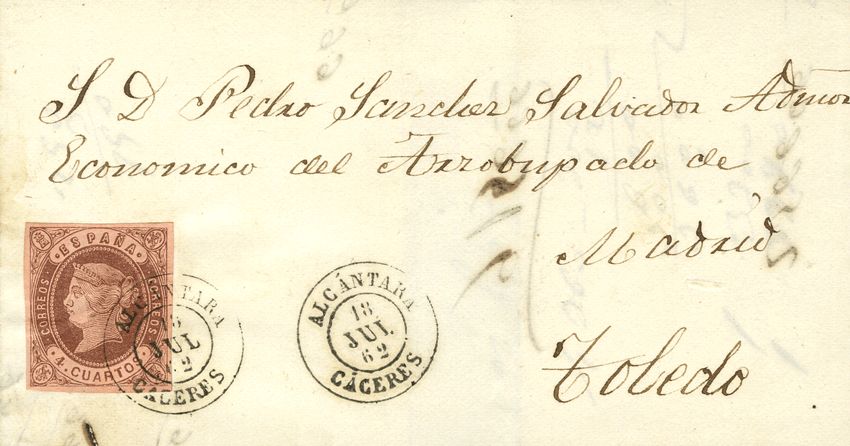 S D Pedro Sanchez Salvador Admor
Economico del Arzobispado de
Madrid
Toledo
ESPAÑA
CORREOS
CORREOS
4 CUARTOS
ALCÁNTARA
18
JUL
62
CÁCERES
ALCÁNTARA
18
JUL
62
CÁCERES